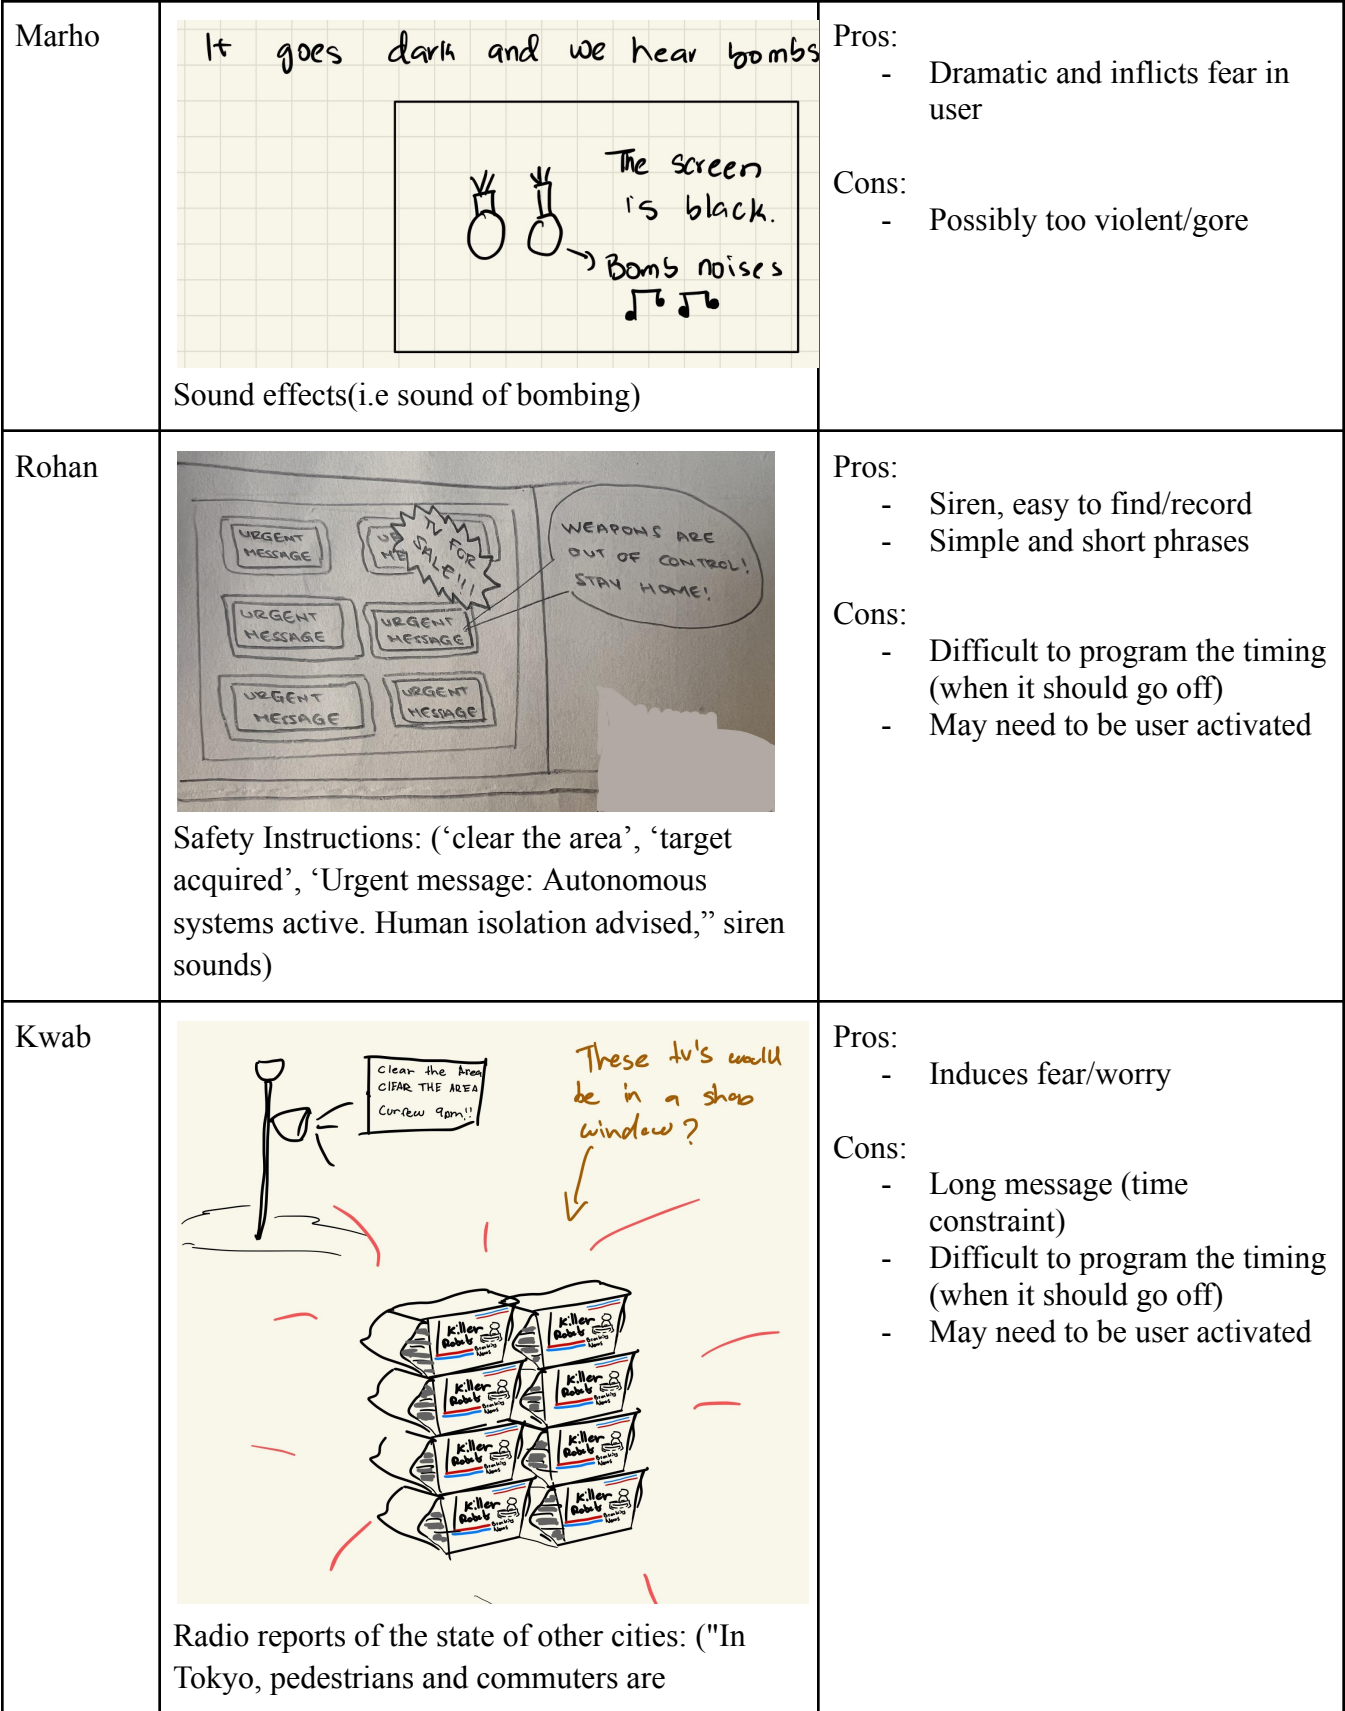 Marho
It goes dark and we hear bombs
The screen
is black.
Bomb noises
Sound effects(i.e sound of bombing)
Pros:
- Dramatic and inflicts fear in
user
Cons:
- Possibly too violent/gore
Rohan
URGENT
MESSAGE
UR
ME
TV FOR
SALE!!!
URGENT
MESSAGE
URGENT
MESSAGE
URGENT
MESSAGE
URGENT
MESSAGE
WEAPONS ARE
OUT OF CONTROL!
STAY HOME!
Safety Instructions: (‘clear the area’, ‘target
acquired’, ‘Urgent message: Autonomous
systems active. Human isolation advised,” siren
sounds)
Pros:
- Siren, easy to find/record
- Simple and short phrases
Cons:
- Difficult to program the timing
(when it should go off)
- May need to be user activated
Kwab
Clear the Area
CLEAR THE AREA
Curfew 9pm!!
These tv's would
be in a shop
window?
Killer
Robots
Breaking
News
Killer
Robots
Breaking
News
Killer
Robots
Breaking
News
Killer
Robots
Breaking
News
Killer
Robots
Breaking
News
Killer
Robots
Breaking
News
Killer
Robots
Breaking
News
Killer
Robots
Breaking
News
Radio reports of the state of other cities: ("In
Tokyo, pedestrians and commuters are
Pros:
- Induces fear/worry
Cons:
- Long message (time
constraint)
- Difficult to program the timing
(when it should go off)
- May need to be user activated